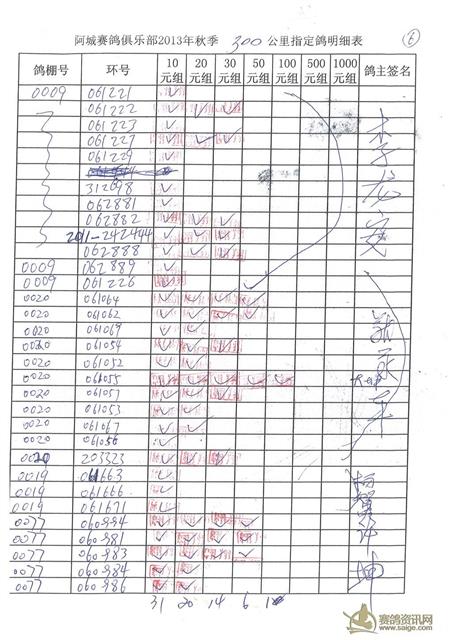 阿城赛鸽俱乐部2013年秋季 300 公里指定鸽明细表 ⑥
鸽棚号 环号 10元组 20元组 30元组 50元组 100元组 200元组 500元组 1000元组 鸽主签名
0009 061221 ✓
061222 ✓ ✓ ✓
061223 ✓
061227 ✓ ✓ ✓
061229 ✓
312098 ✓
062881 ✓
062882 ✓ ✓ ✓
2011-242444 ✓ ✓ ✓
062888 ✓ ✓ ✓
0009 062889 ✓
0009 061226 ✓
0020 061064 ✓ ✓ ✓ ✓
0020 061062 ✓ ✓ ✓
0020 061069 ✓ ✓
0020 061054 ✓ ✓ ✓
0020 061052 ✓ ✓
0020 061055 ✓ ✓ ✓ ✓ ✓
0020 061057 ✓ ✓ ✓
0020 061053 ✓ ✓
0020 061067 ✓ ✓
0020 061056 ✓
0020 203323 ✓ ✓ ✓
0019 061663 ✓
0019 061666 ✓
0019 061671 ✓
0077 060994 ✓ ✓ ✓ ✓
0077 060981 ✓ ✓ ✓ ✓
0077 060983 ✓ ✓ ✓ ✓
0077 060984 ✓ ✓
0077 060986 ✓ ✓
31 20 14 6
赛鸽资讯网
www.saige.com